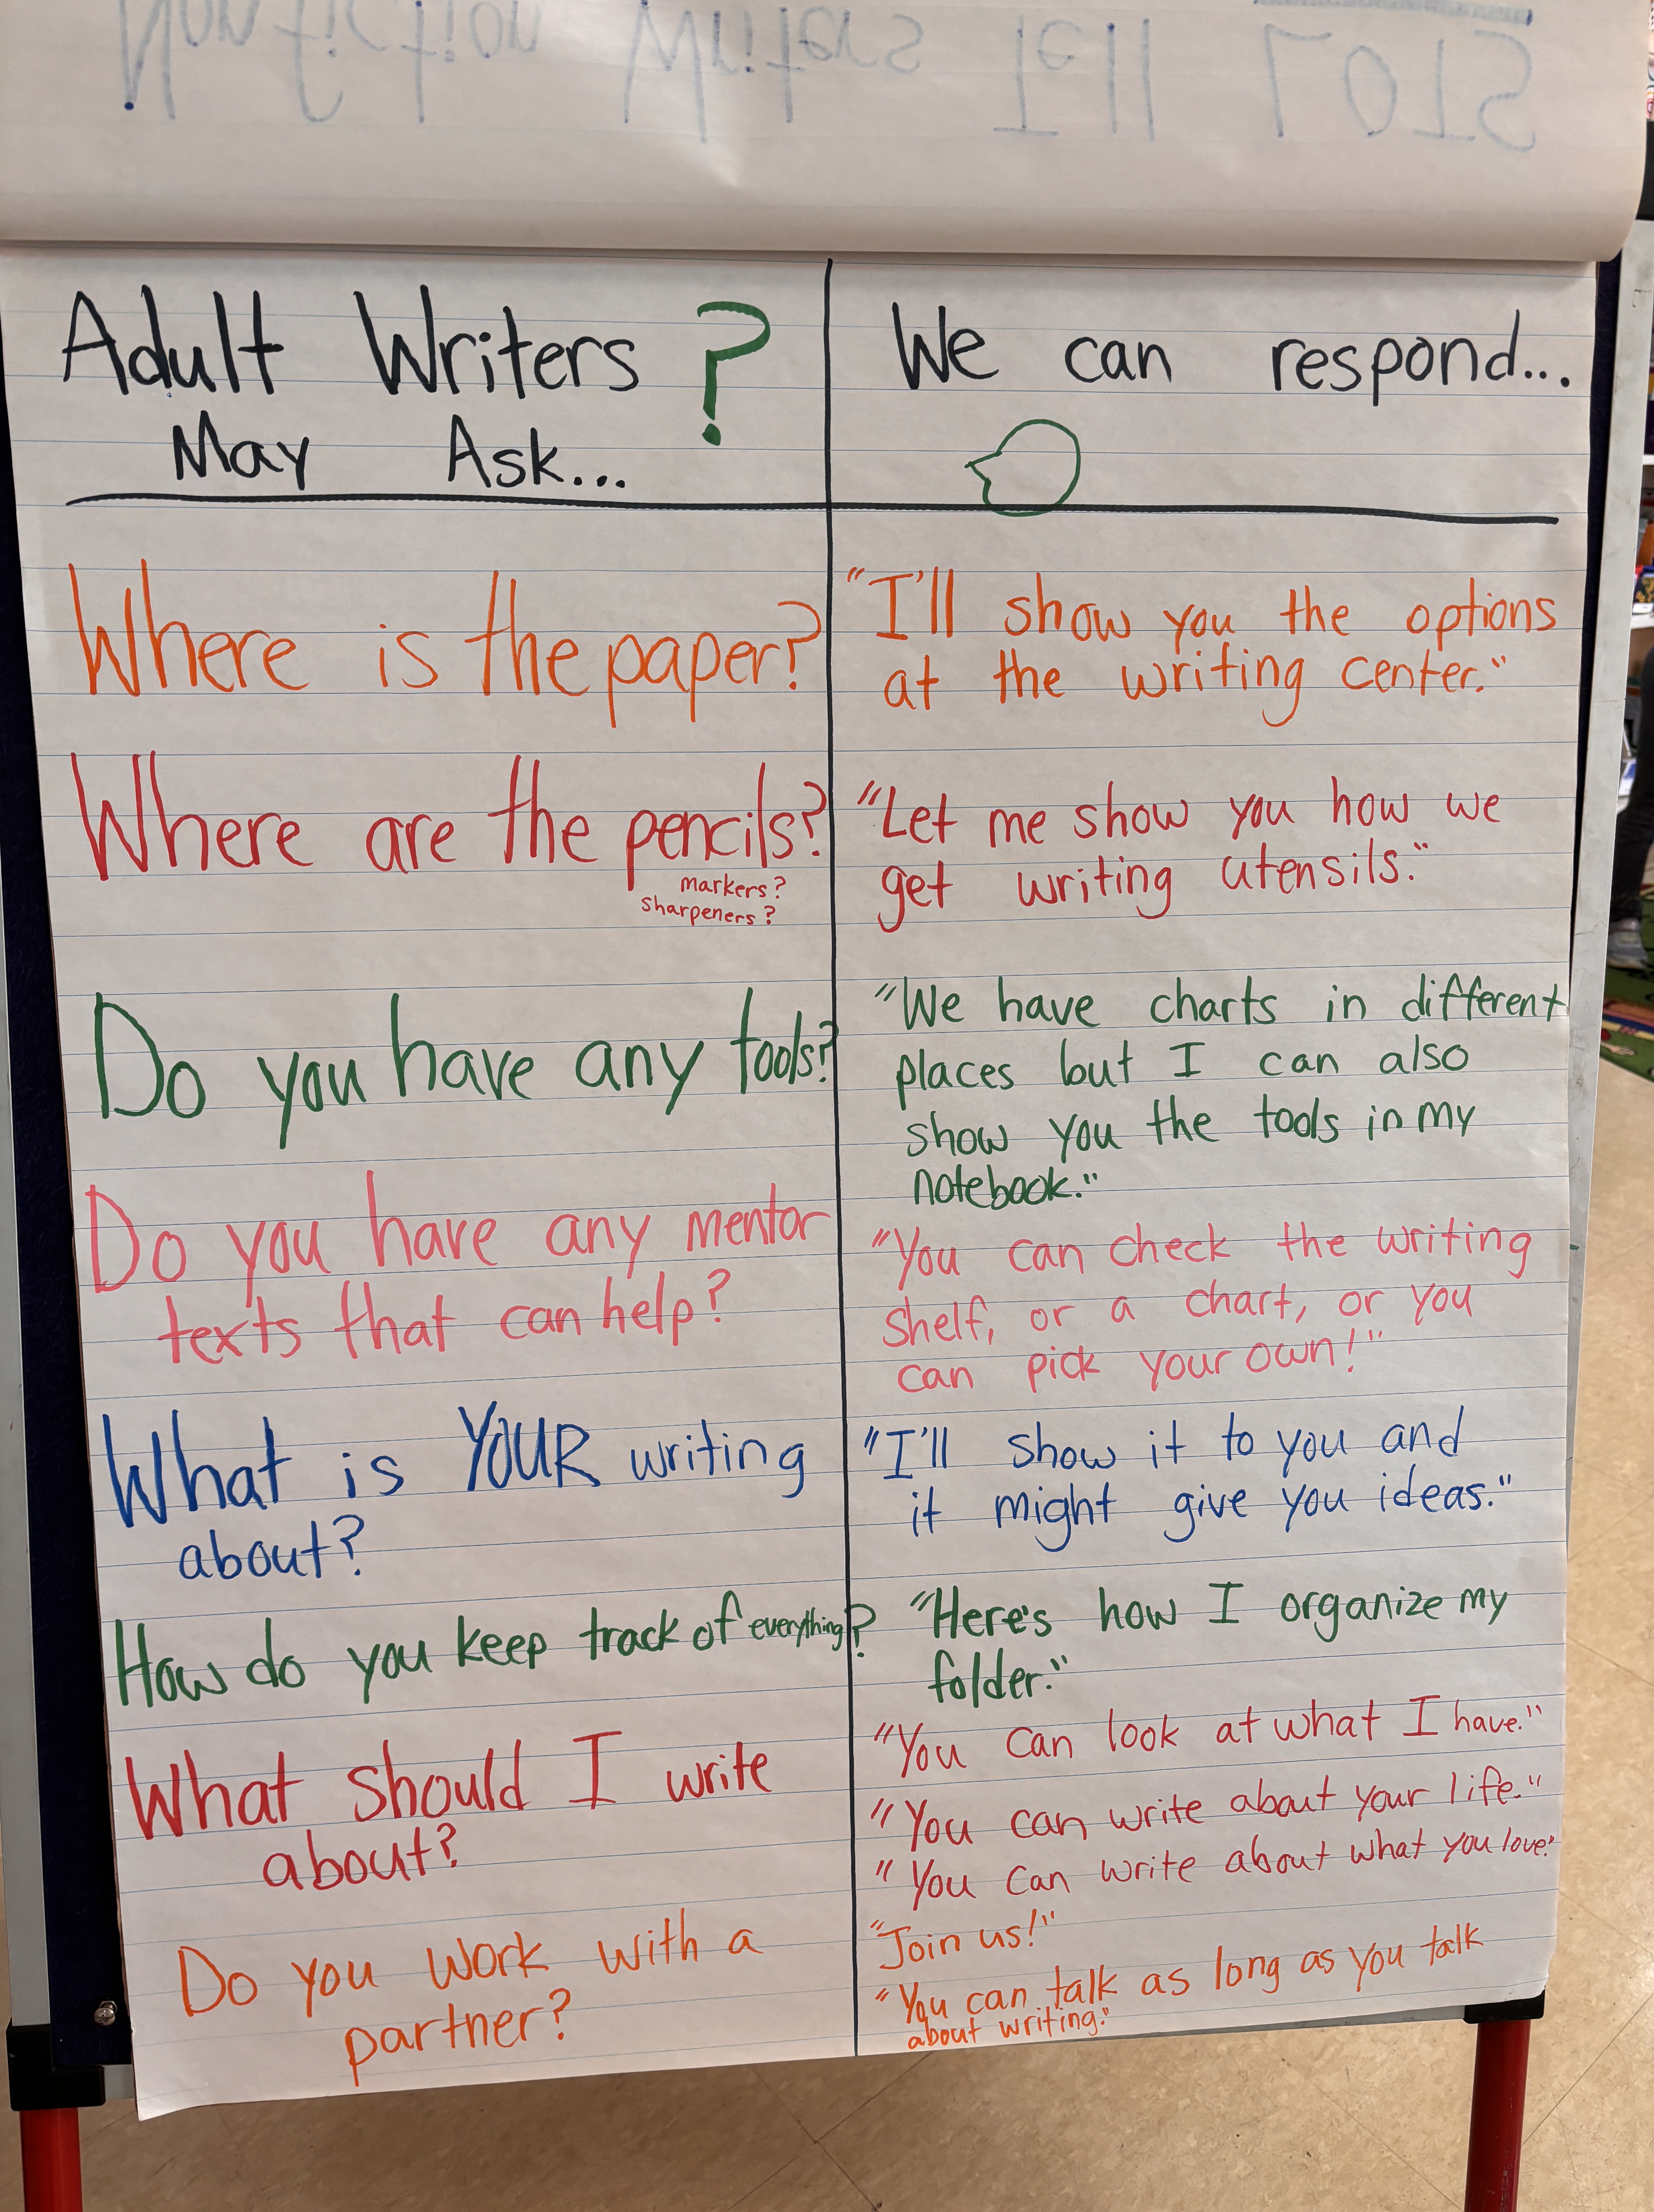 Nonfiction Writers Tell LOTS
Adult Writers ?
May Ask...
We can respond...
Where is the paper?
"I'll show you the options
at the writing center."
Where are the pencils?
markers?
sharpeners?
"Let me show you how we
get writing utensils."
Do you have any tools?
"We have charts in different
places but I can also
show you the tools in my
notebook."
Do you have any mentor
texts that can help?
"You can check the writing
shelf, or a chart, or you
can pick your own!"
What is YOUR writing
about?
"I'll show it to you and
it might give you ideas."
How do you keep track of everything?
"Here's how I organize my
folder."
What should I write
about?
"You can look at what I have."
"You can write about your life."
"You can write about what you love."
Do you work with a
partner?
"Join us!"
"You can talk as long as you talk
about writing."